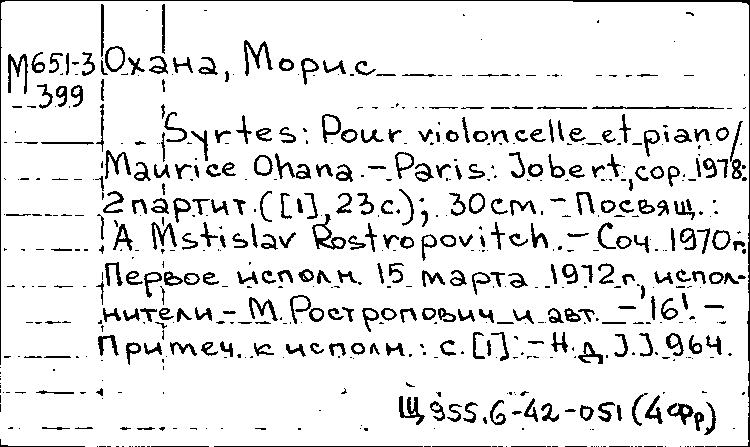 М651-3 Охана, Морис
399
Syrtes: Pour violoncelle et piano/
Maurice Ohana. – Paris: Jobert, cop. 1978.
2 партит. ([1], 23 с.); 30 см. – Посвящ.:
A Mstislav Rostropovitch. – Соч. 1970 г.
Первое исполн. 15 марта 1972 г., испол-
нители – М. Ростропович и авт. – '16'. –
Примеч. к исполн.: с. [1]. – Н.д. J.J. 964.
Щ955.6-42-051 (4Фр)